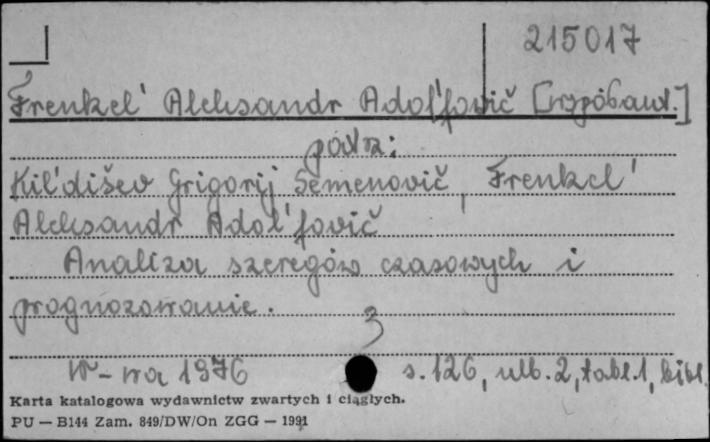 215017
Frenkel' Aleksandr Adol'fovič [współaut.]
patrz:
Kil'dišev Grigorij Semenovič, Frenkel'
Aleksandr Adol'fovič
Analiza szeregów czasowych i
prognozowanie.
3
W-wa 1976 s. 126, nlb. 2, tabl. 1, bibl.
Karta katalogowa wydawnictw zwartych i ciągłych.
PU — B144 Zam. 849/DW/On ZGG — 1991